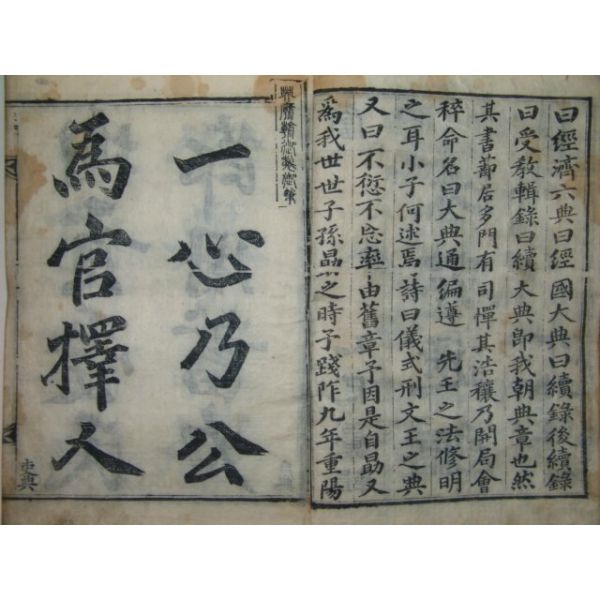 曰經濟六典曰經國大典曰續錄後續錄
曰受敎輯錄曰續大典卽我朝典章也然
其書莭居多門有司憚其浩穰乃開局會
稡命名曰大典通編遵 先王之法修明
之耳小子何述焉詩曰儀式刑文王之典
又曰不愆不忘率由舊章予因是自勗又
爲我世世子孫勗之時予踐阼九年重陽
一心乃公
爲官擇人
吏典